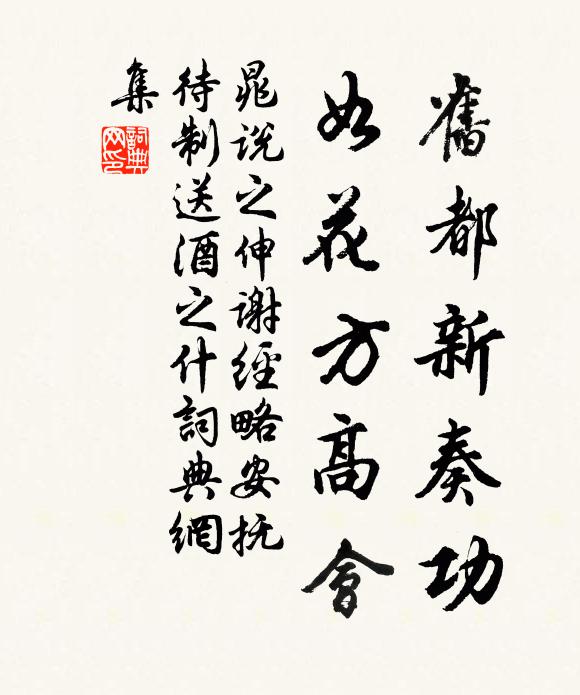 舊都新奏功
如花方高會
晁說之伸謝經略安抚
待制送酒之什詞典網
集
詞典网印